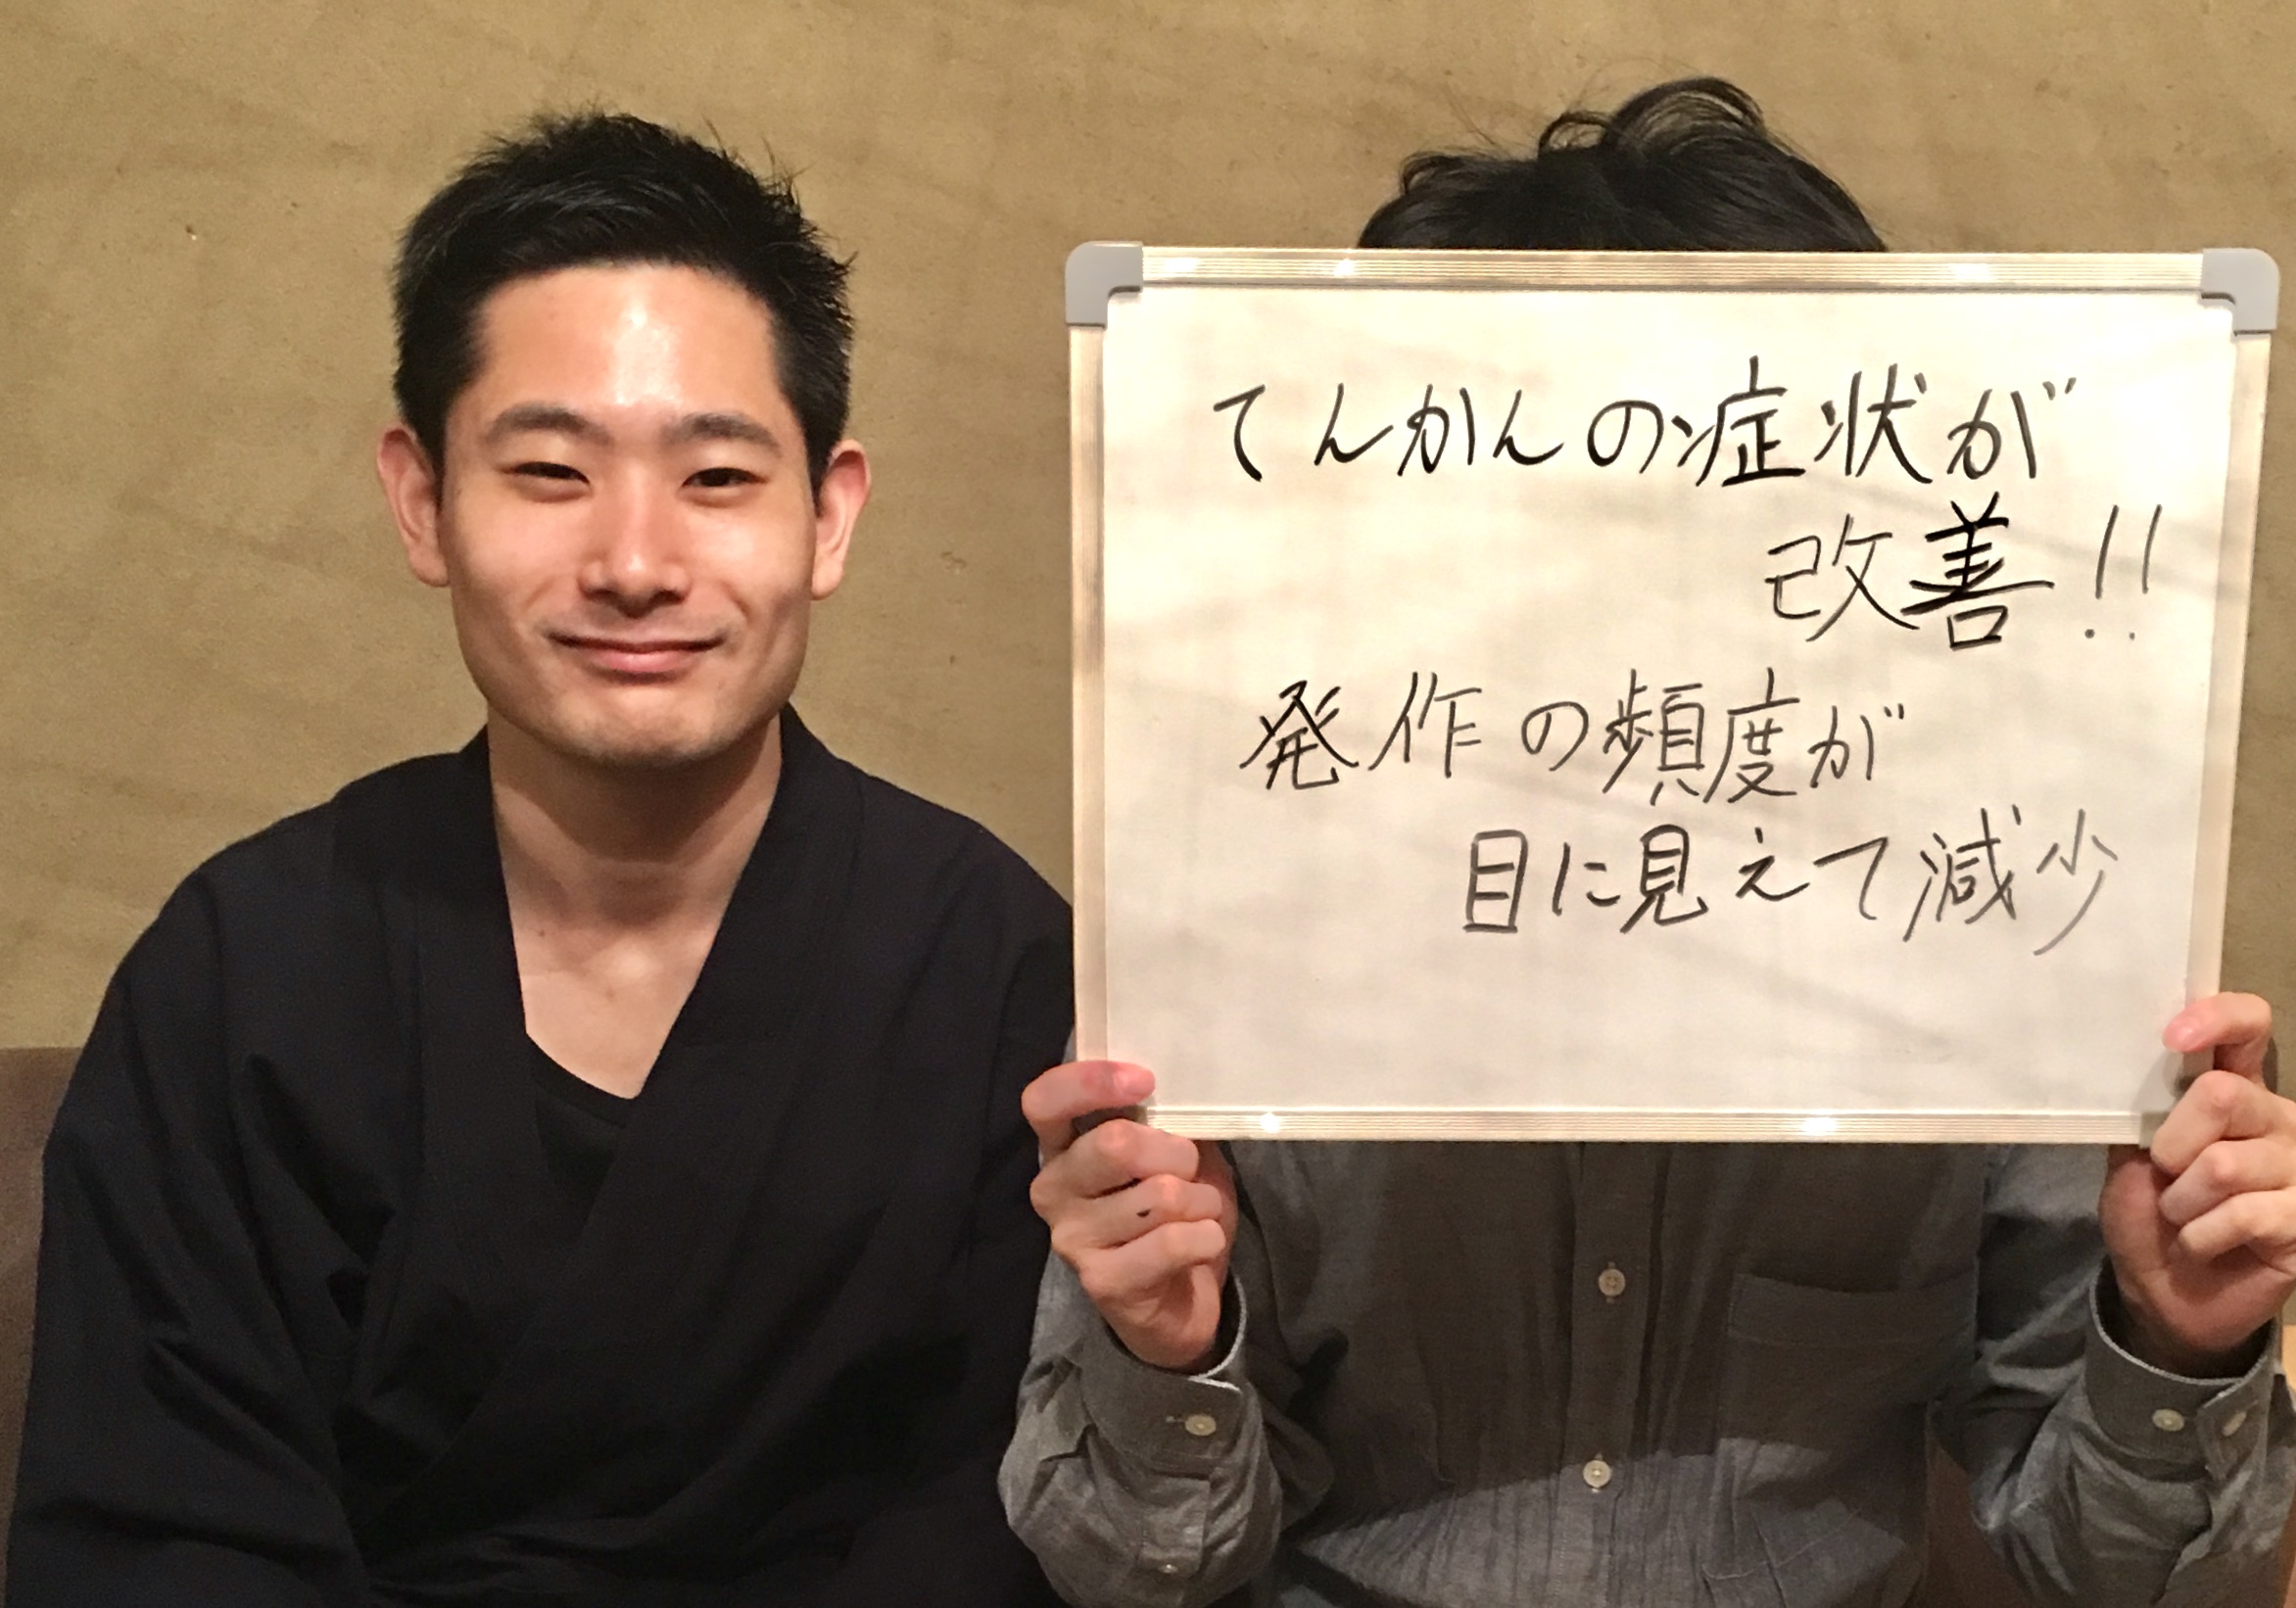 てんかんの症状が
改善!!
発作の頻度が
目に見えて減少